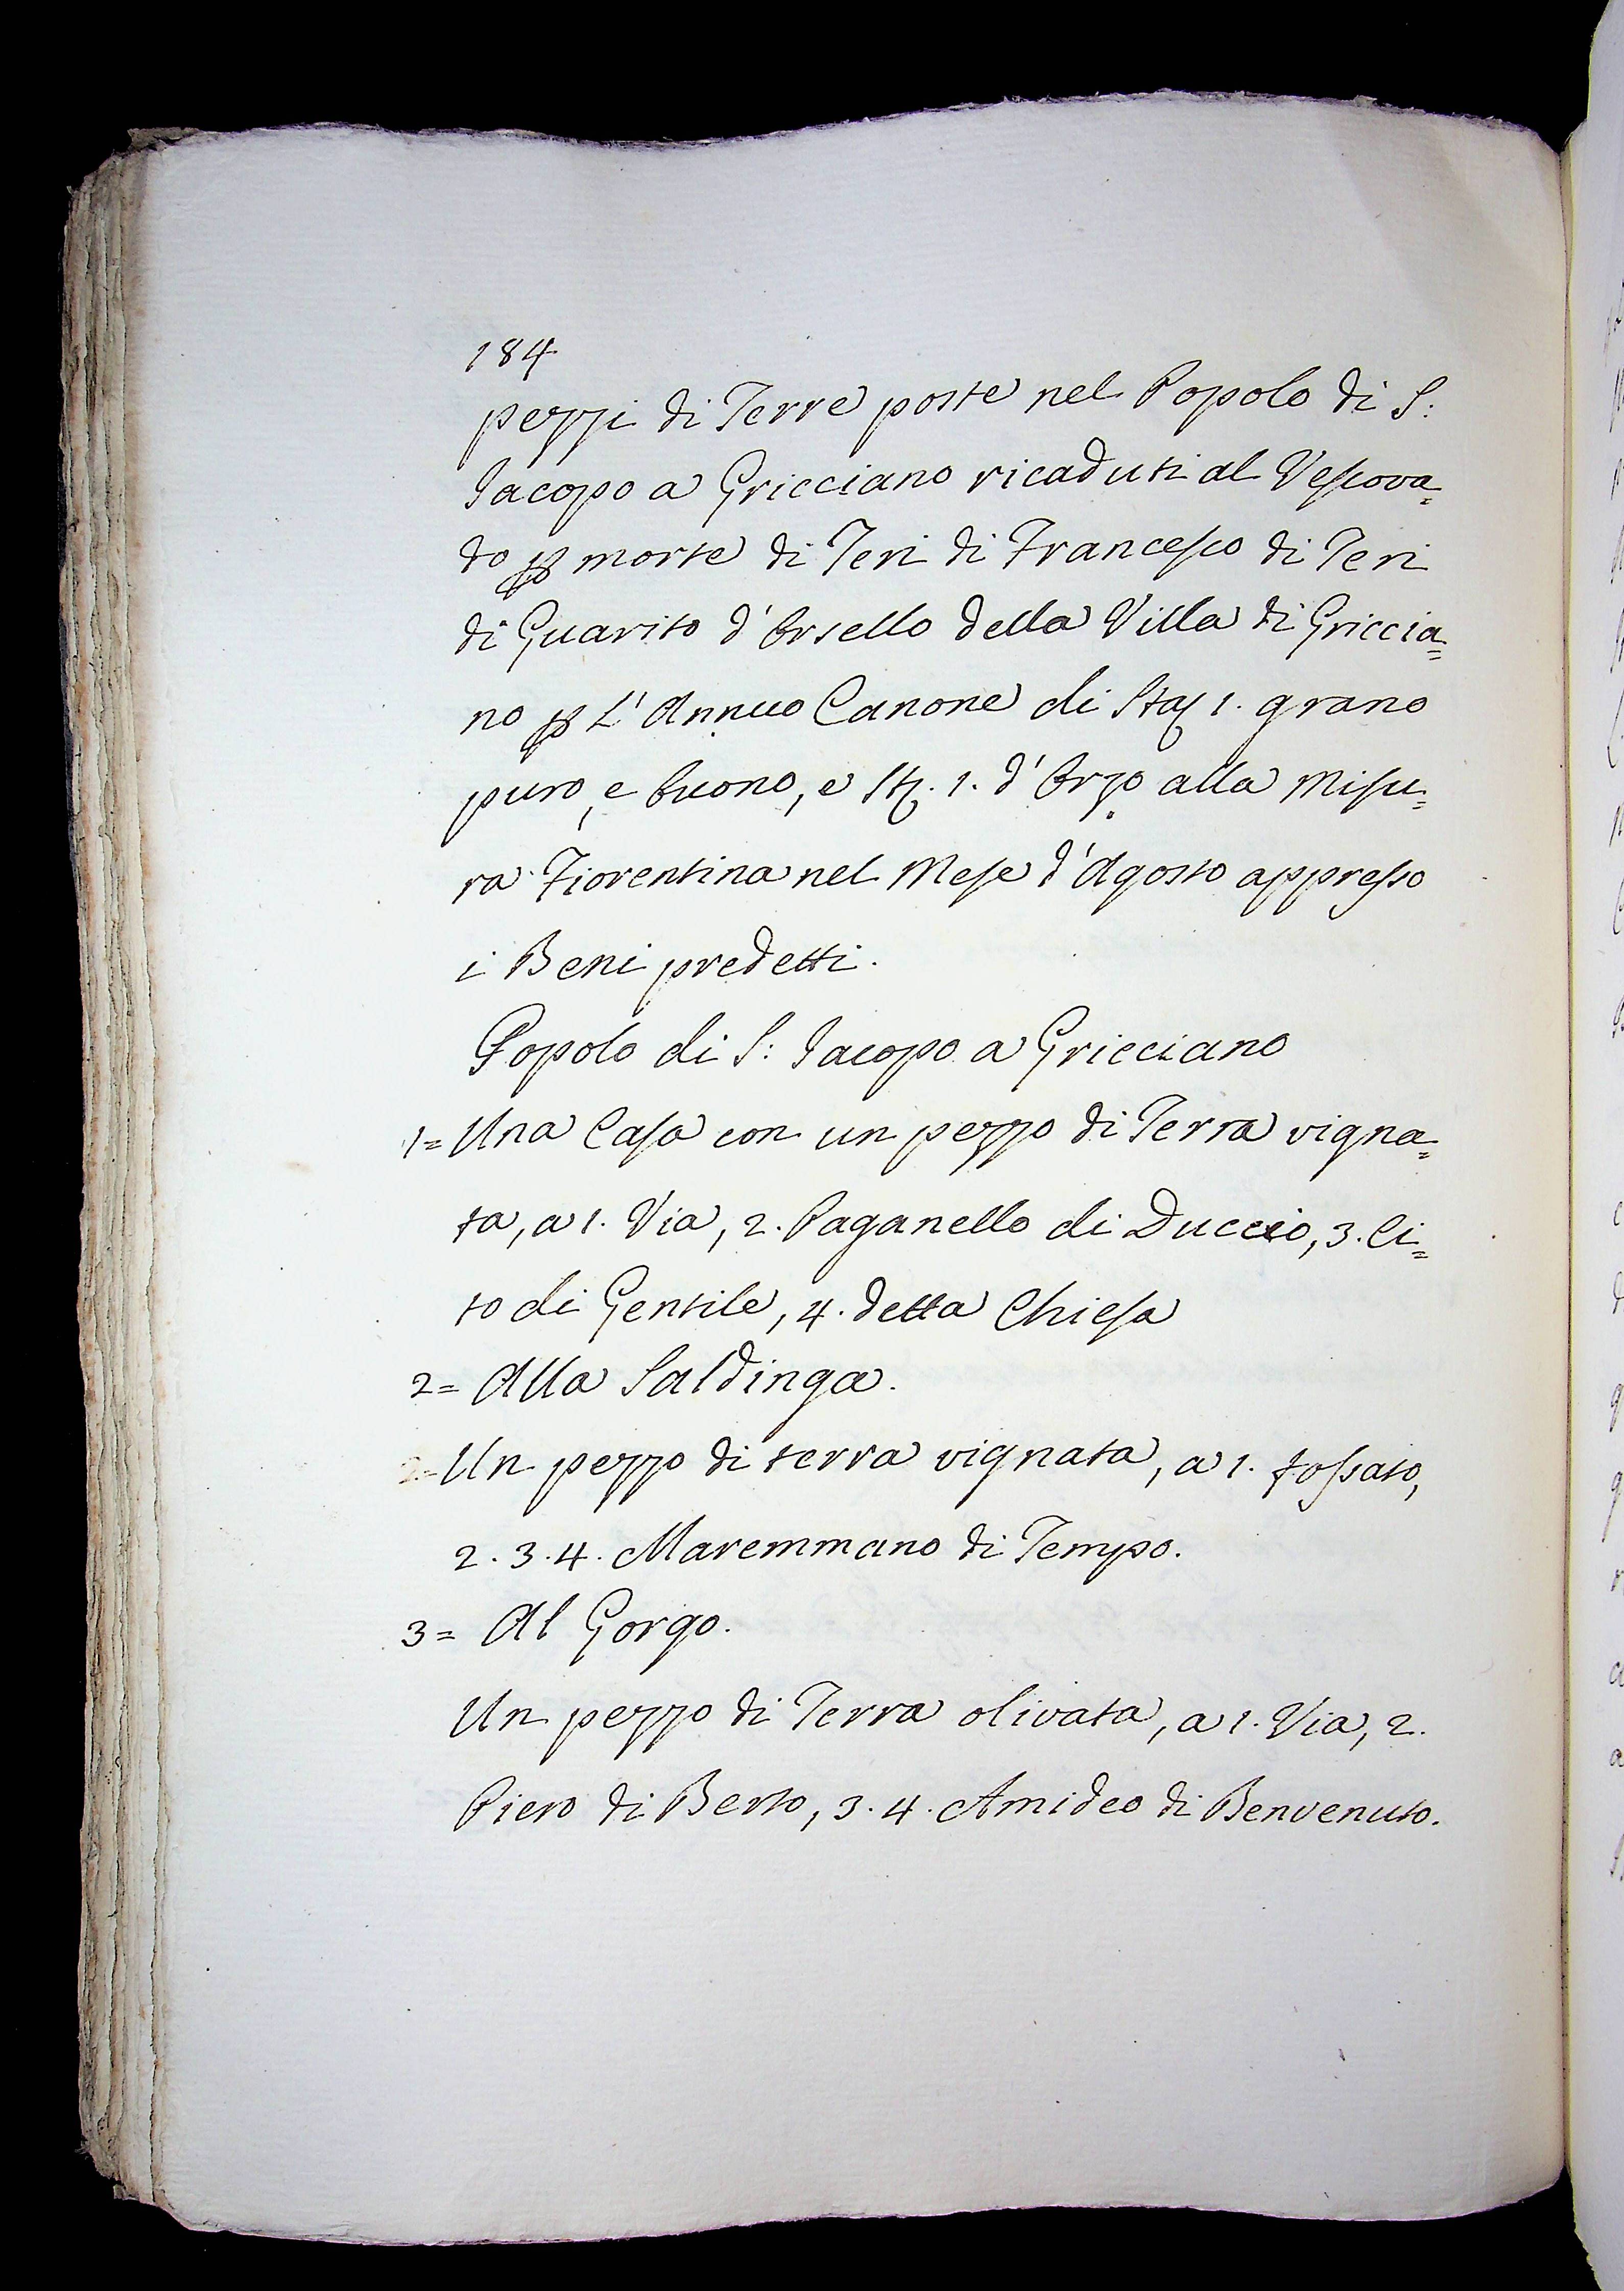 184
pezzi di Terre poste nel Popolo di S:
Jacopo a Gricciano ricaduti al Vescova=
do p morte di Teri di Francesco di Teri
di Guarito d'Orsello della Villa di Griccia=
no p L'Annuo Canone di Sta 1. grano
puro, e buono, e St. 1. d'Orzo alla Misu=
ra Fiorentina nel Mese d'Agosto appresso
i Beni predetti.
Popolo di S: Jacopo a Gricciano
1= Una Casa con un pezzo di Terra vigna=
ta, a 1. Via, 2. Paganello di Duccio, 3. Ci=
to di Gentile, 4. detta Chiesa
2= Alla Saldinga.
2= Un pezzo di terra vignata, a 1. fossato,
2. 3. 4. Maremmano di Tempo.
3= Al Gorgo.
Un pezzo di Terra olivata, a 1. Via, 2.
Piero di Berto, 3. 4. Amideo di Benvenuto.